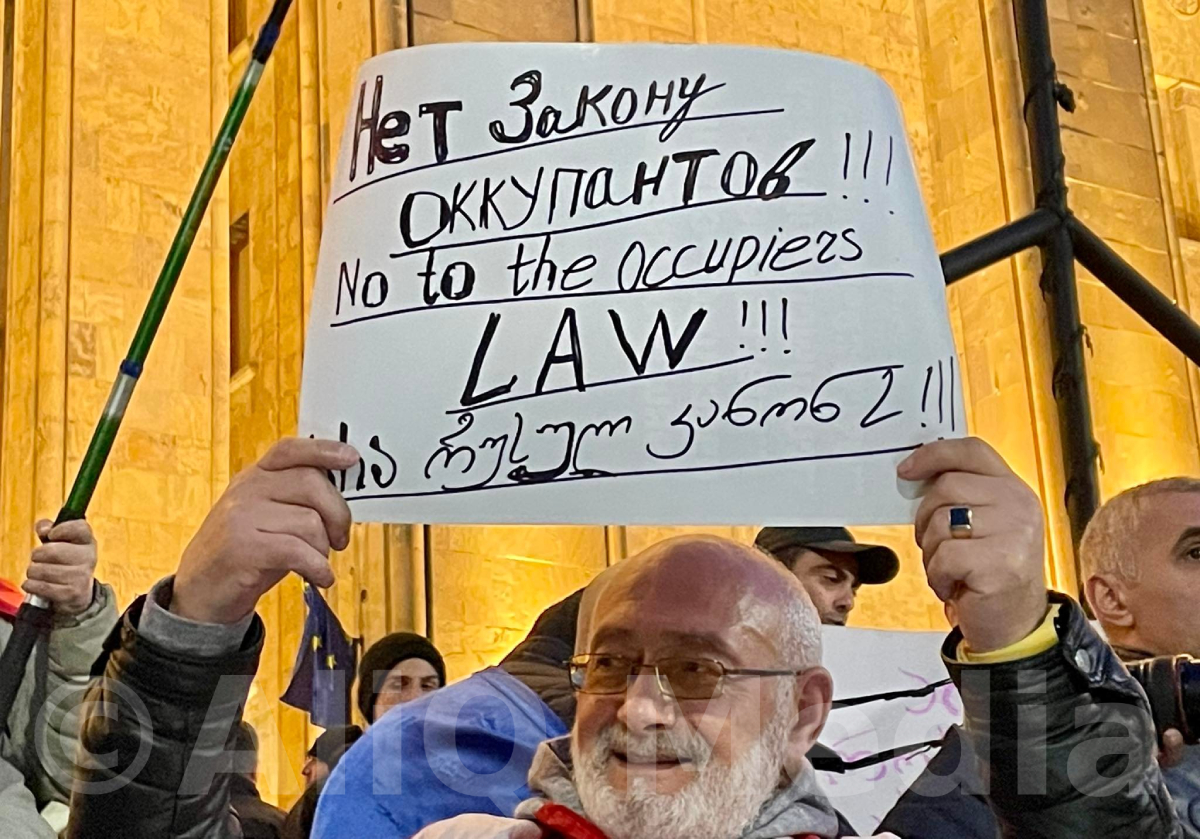 Нет Закону
оккупантов !!!
No to the occupiers
LAW !!!
არა რუსულ კანონს !!!
©AliQ Media